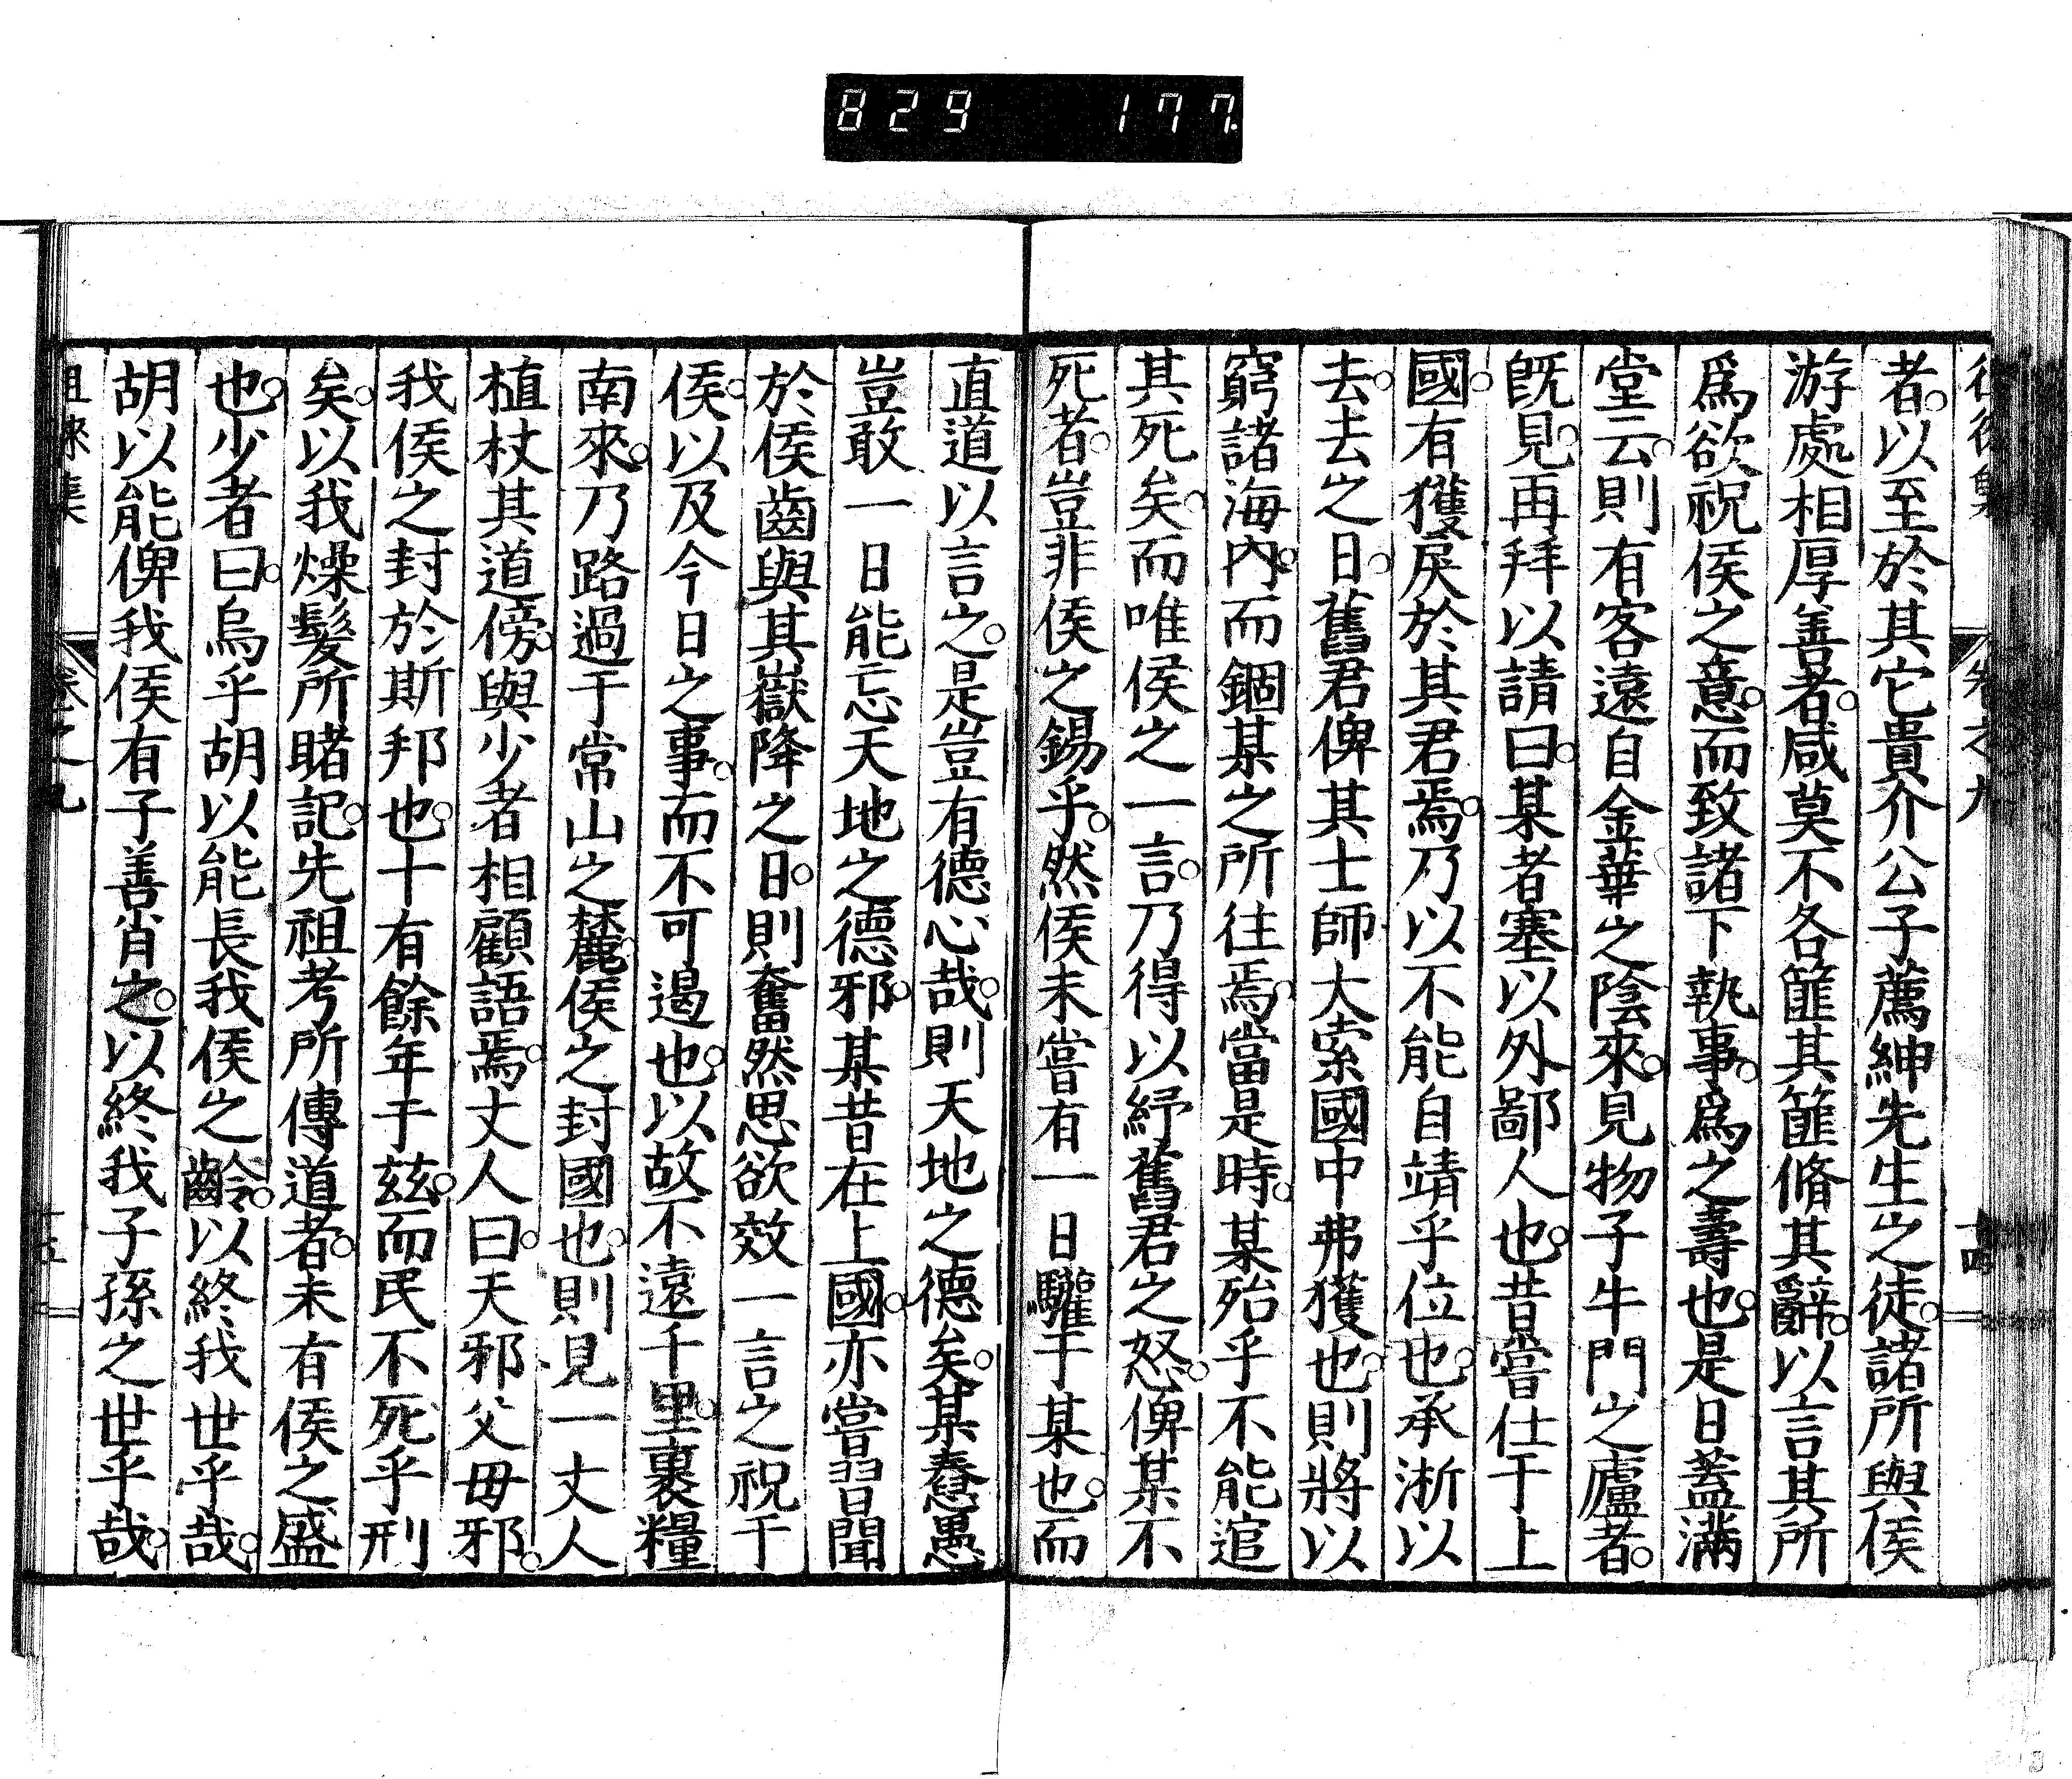 829 177.
者。以至於其它貴介公子薦紳先生之徒。諸所與侯
游處相厚善者。咸莫不各篚其篚脩其辭。以言其所
爲欲祝侯之意。而致諸下執事。爲之壽也。是日蓋滿
堂云。則有客遠自金華之陰來。見物子牛門之廬者。
既見。再拜以請曰。某者塞以外鄙人也。昔嘗仕于上
國。有獲戾於其君焉。乃以不能自靖乎位也。承淅以
去。去之日。舊君俾其士師大索國中弗獲也。則將以
窮諸海內。而錮某之所往焉。當是時。某殆乎不能逭
其死矣。而唯侯之一言。乃得以紓舊君之怒。俾某不
死者。豈非侯之錫乎。然侯未嘗有一日驩于某也。而
直道以言之。是豈有德心哉。則天地之德矣。某惷愚
豈敢一日能忘天地之德邪。某昔在上國。亦嘗習聞
於侯齒與其嶽降之日。則奮然思欲效一言之祝于
侯。以及今日之事。而不可遏也。以故不遠千里。裹糧
南來。乃路過于常山之麓。侯之封國也。則見一丈人
植杖其道傍。與少者相顧語焉。丈人曰。天邪父母邪。
我侯之封於斯邦也。十有餘年于茲。而民不死乎刑
矣。以我燥髮所睹記。先祖考所傳道者。未有侯之盛
也。少者曰。烏乎胡以能長我侯之齡。以終我世乎哉。
胡以能俾我侯有子善肖之。以終我子孫之世乎哉。
徂徠集
卷之九
十五